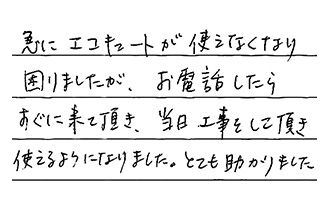 急に エコキュートが 使えなくなり
困りましたが、お電話したら
すぐに来て頂き、当日工事をして頂き
使えるようになりました。とても助かりました